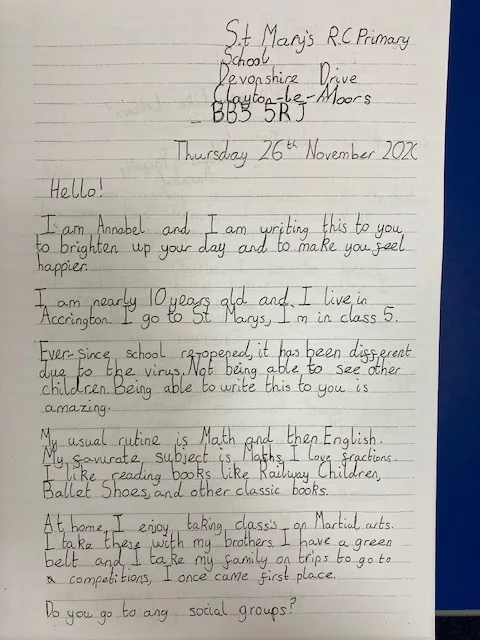 St Mary's R.C Primary
School
Devonshire Drive
Clayton-le-Moors
BB5 5RJ
Thursday 26th November 2020
Hello!
I am Annabel and I am writing this to you
to brighten up your day and to make you feel
happier.
I am nearly 10 years old and I live in
Accrington. I go to St Marys, I'm in class 5.
Ever-since school re-opened, it has been different
due to the virus. Not being able to see other
children. Being able to write this to you is
amazing.
My usual rutine is Math and then English.
My favurate subject is Maths, I love fractions.
I like reading books like Railway Children,
Ballet Shoes, and other classic books.
At home, I enjoy taking class's on Martial arts.
I take these with my brothers. I have a green
belt and I take my family on trips to go to
competitions, I once came first place.
Do you go to any social groups?